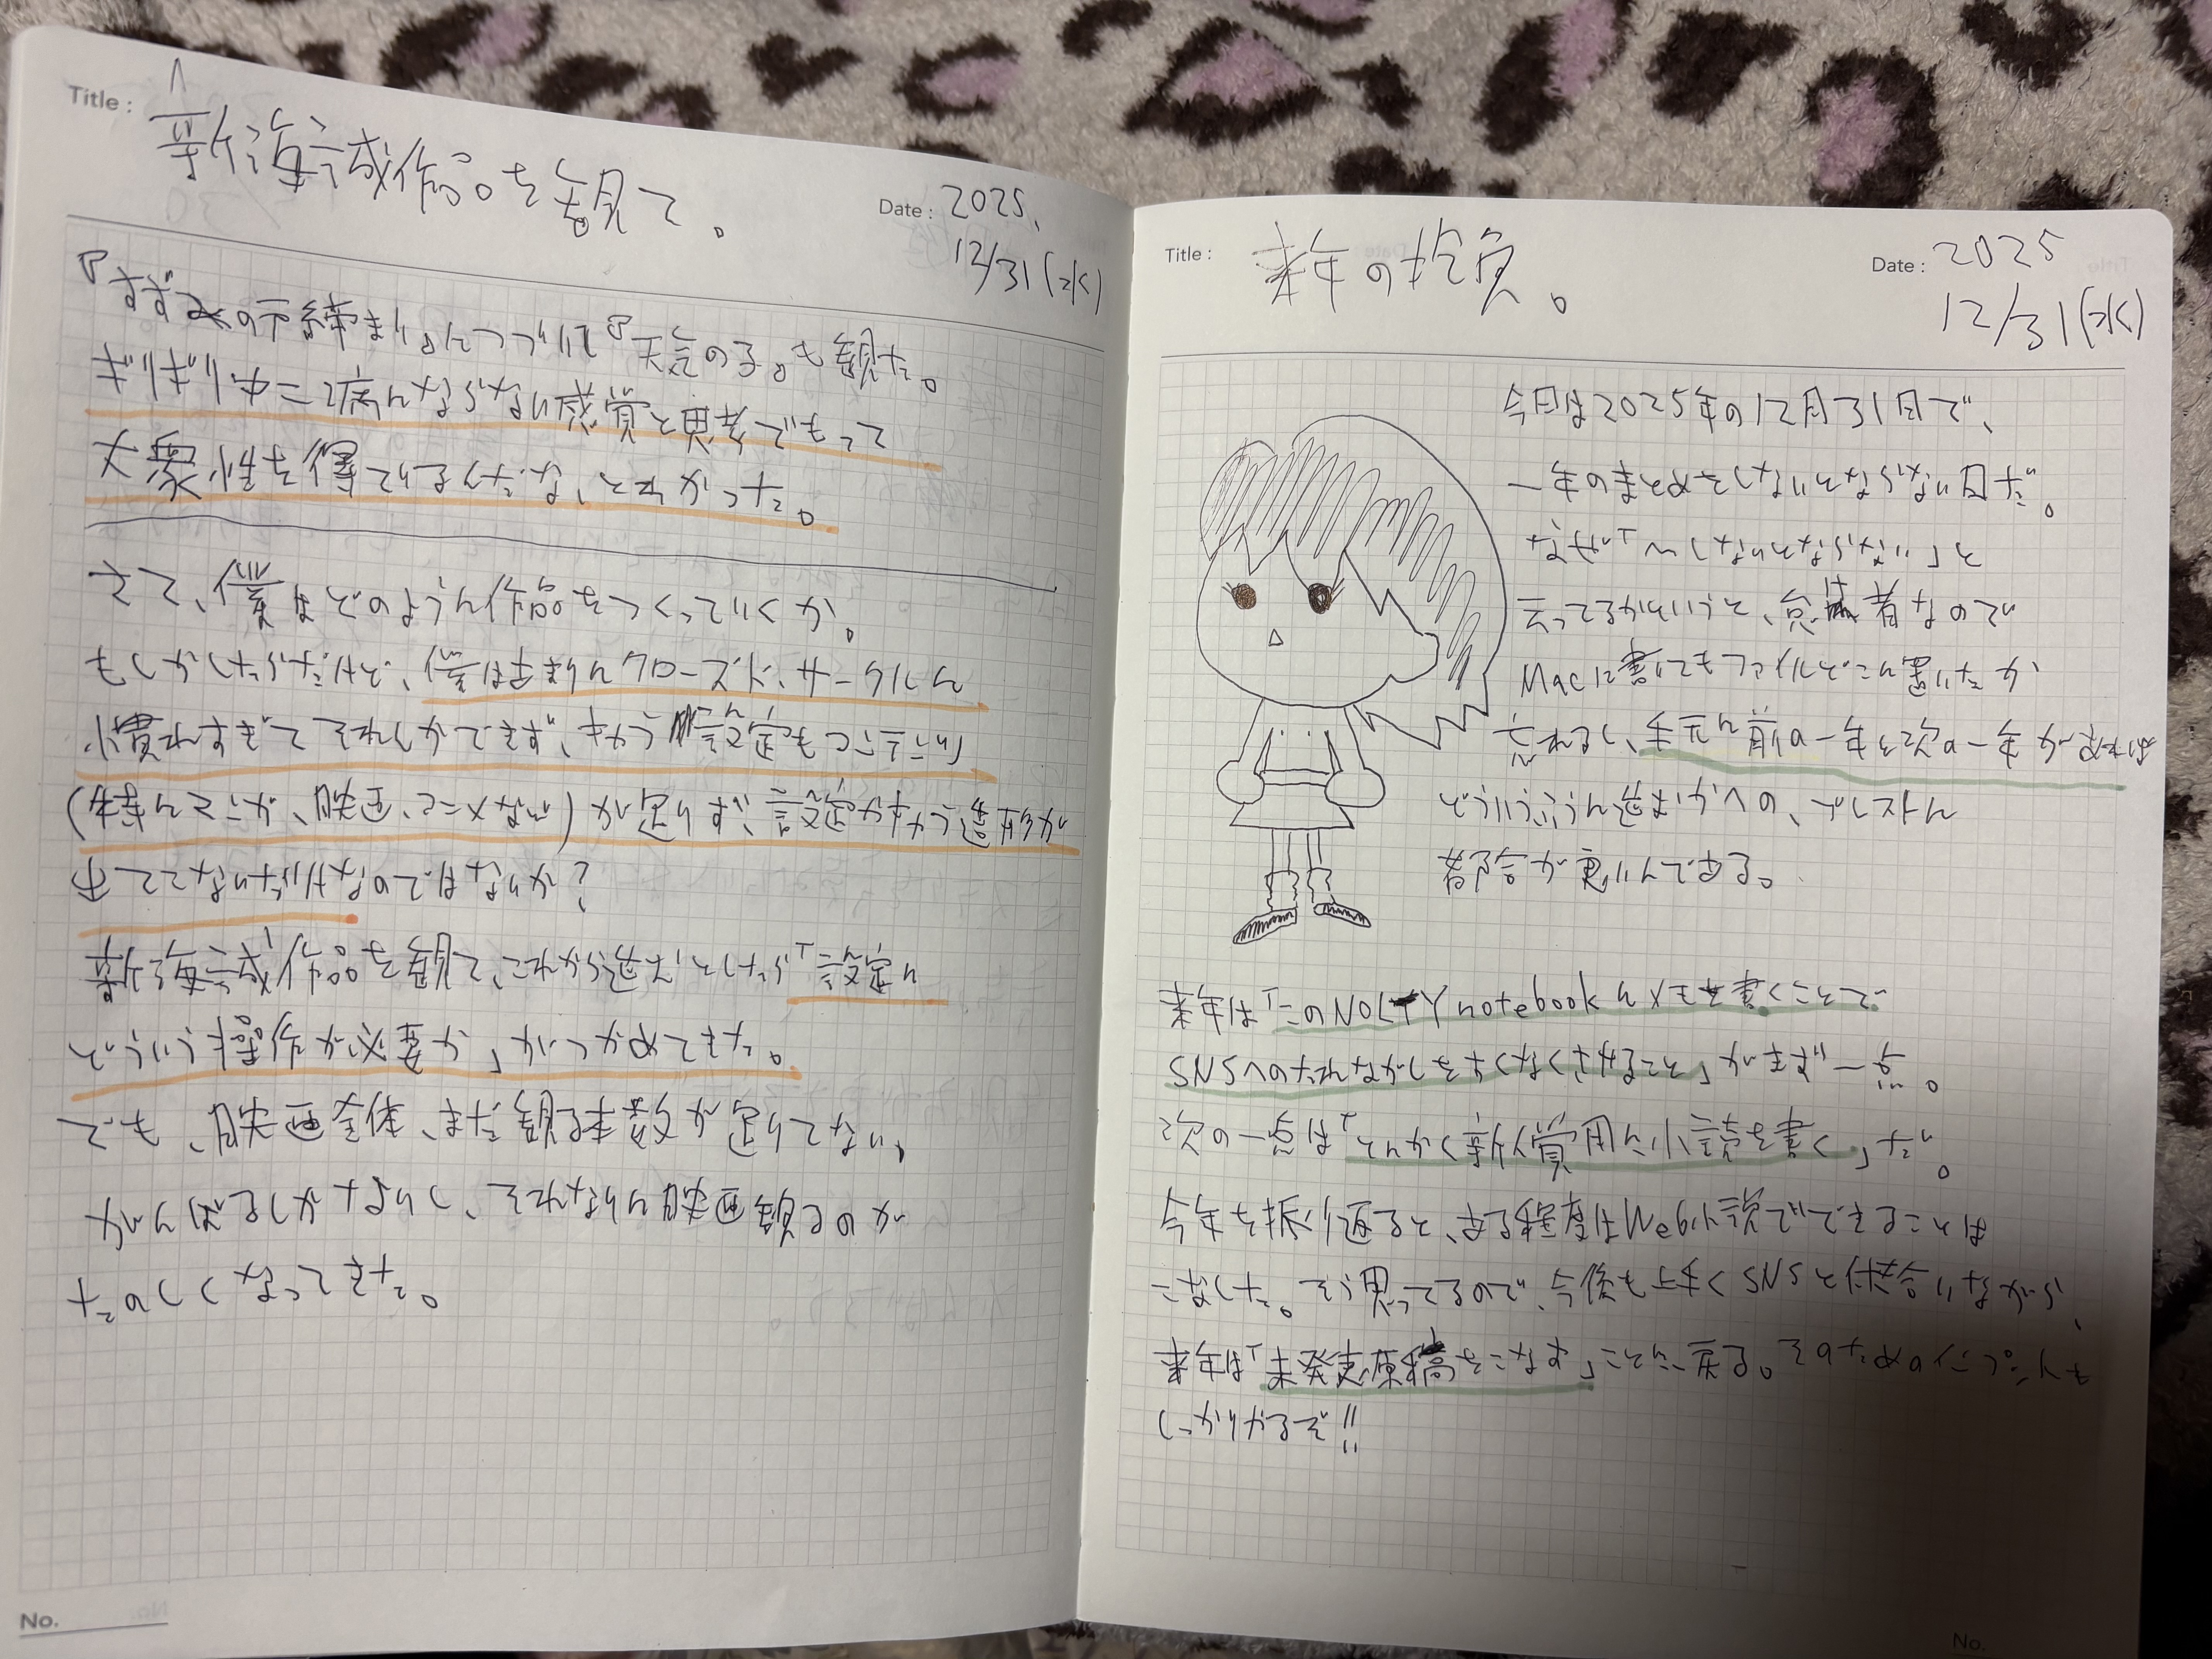 Title : 新海誠作品を観て。
Date : 2025.
12/31(水)
『すずめの戸締まり』につづいて『天気の子』も観た。
ギリギリ中二病にならない感覚と思考でもって
大衆性を得ているんだな、とわかった。
さて、僕はどのように作品をつくっていくか。
もしかしたらだけど、僕はあまりにクローズド・サークルに
慣れすぎてそれしかできず、もう設定もつこうにも
(特にマンガ、映画、アニメなど)が足りず、設定かまう造形が
立ててないだけなのではないか?
新海誠作品を観て、これから進むとしたら「設定に
どういう操作が必要か」がつかめてきた。
でも、映画全体、まだ観る本数が足りてない。
がんばるしかないし、それなりに映画観るのが
たのしくなってきた。
No.
Title : 来年の抱負。
Date : 2025
12/31(水)
今日は2025年の12月31日で、
一年のまとめをしないとならない日だ。
なぜ「〜しないとならない」と
云ってるかというと、怠け者なので
Macに書いてもファイルどこに置いたか
忘れるし、手元に前の一年と次の一年があれば
どういうふうに進むかへの、ブレストに
都合が良いんである。
来年は「このNOLTY notebookにメモを書くことで
SNSへのたれながしをすくなくさせること」がまず一点。
次の一点は「とにかく新人賞用に小説を書く」だ。
今年を振り返ると、ある程度はWeb小説でできることは
こなした。そう思ってるので、今後も上手くSNSと付き合いながら、
来年は「未発表原稿をこなす」ことに戻る。そのためのインプットも
しっかりやるぞ!!
No.